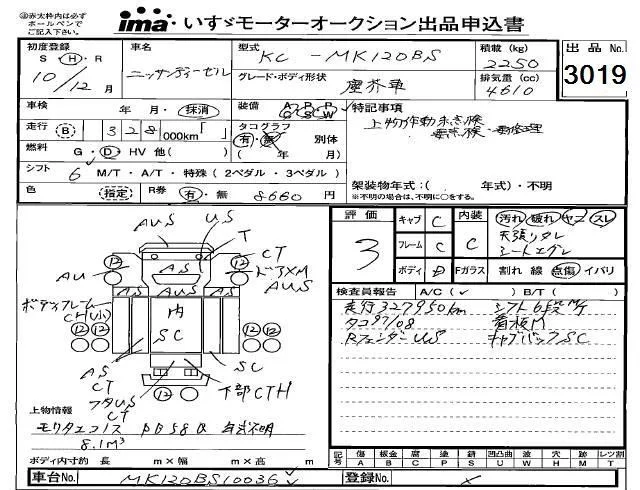 赤太枠内は必ず
ボールペンで
ご記入下さい。
ima いすゞモーターオークション出品申込書
初度登録 車名 型式 KC - MK120BS 積載 (kg) 2250 出品 No. 3019
S・H・R 10/12月 ニッサンディーゼル グレード・ボディ形状 塵芥車 排気量 (cc) 4610
車検 年・月・抹消 装備 A C P S P W 特記事項
走行 B 328 000km「 」 タコグラフ 有・無 別体 ( 年/ 月) 上物作動未点検
燃料 G・D・HV 他( )
シフト 6 M/T・A/T・特殊 ( 2ペダル・3ペダル )
色 指定 R券 有・無 8660 円 架装物年式:( 年式)・不明
※不明の場合は、不明に○をする。
評価 3 キャブ C 内装 C 汚れ 破れ ヤニ スレ
フレーム C 天張りタレ
シートエグレ
ボディ D Fガラス 割れ 線 点傷 イバリ
検査員報告 A/C( ✓ ) B/T( )
走行327950km シフト6段M/T
タコ97/08 看板M
RフェンダーUS キャブバックSC
AUS US T
12 12 CT
AU AS ドアXM
AUS
ボデーフレーム AS AS AS
CH(小) 内
12 12 SC 12 12
AS SC
CT
フタUS 12 下部CTH
CT
上物情報
モリタエコノス PB58Q 年式不明
8.1m³
ボディ内寸約 長 m×幅 m×高 m
記号 A 傷 B 板金 C 腐 P 塗 S 錆 U 凹凸曲 W 波 H 穴 M 跡 T レツ割
車台No. MK120BS10036 登録No. ×